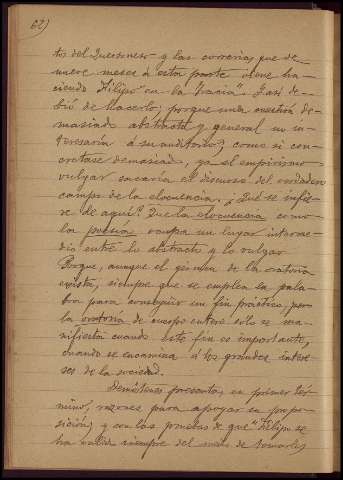 62)
tos del Quersoneso y las correrías que de
nueve meses á esta parte viene ha-
ciendo Filipo en la Tracia". Y así de-
bió de hacerlo; porque una cuestión de-
masiado abstracta y general no in-
teresaría á su auditorio; como si con-
cretase demasiado, ya el empirismo
vulgar sacaría el discurso del verdadero
campo de la elocuencia. ¿Qué se infie-
re de aquí? Que la elocuencia como
la poesía ocupa un lugar interme-
dio entre lo abstracto y lo vulgar
Porque, aunque el gérmen de la oratoria
exista, siempre que se emplea la pala-
bra para conseguir un fin práctico, pero
la oratoria de cuerpo entero solo se ma-
nifiesta cuando este fin es importante,
cuando se encamina á los grandes intere-
ses de la sociedad.
Demóstenes presenta, en primer tér-
mino, razones para apoyar su propo-
sición; y son las pruebas de que "Filipo se
ha valido siempre del medio de tomarles